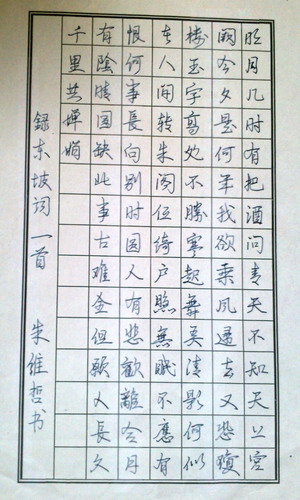 明月几时有把酒问青天不知天上宫
阙今夕是何年我欲乘风归去又恐瓊
楼玉宇高处不勝寒起舞弄清影何似
在人间转朱阁低绮户照無眠不應有
恨何事長向别时圆人有悲歡離合月
有陰晴圆缺此事古难全但願人長久
千里共婵娟
録东坡词一首 朱维哲书